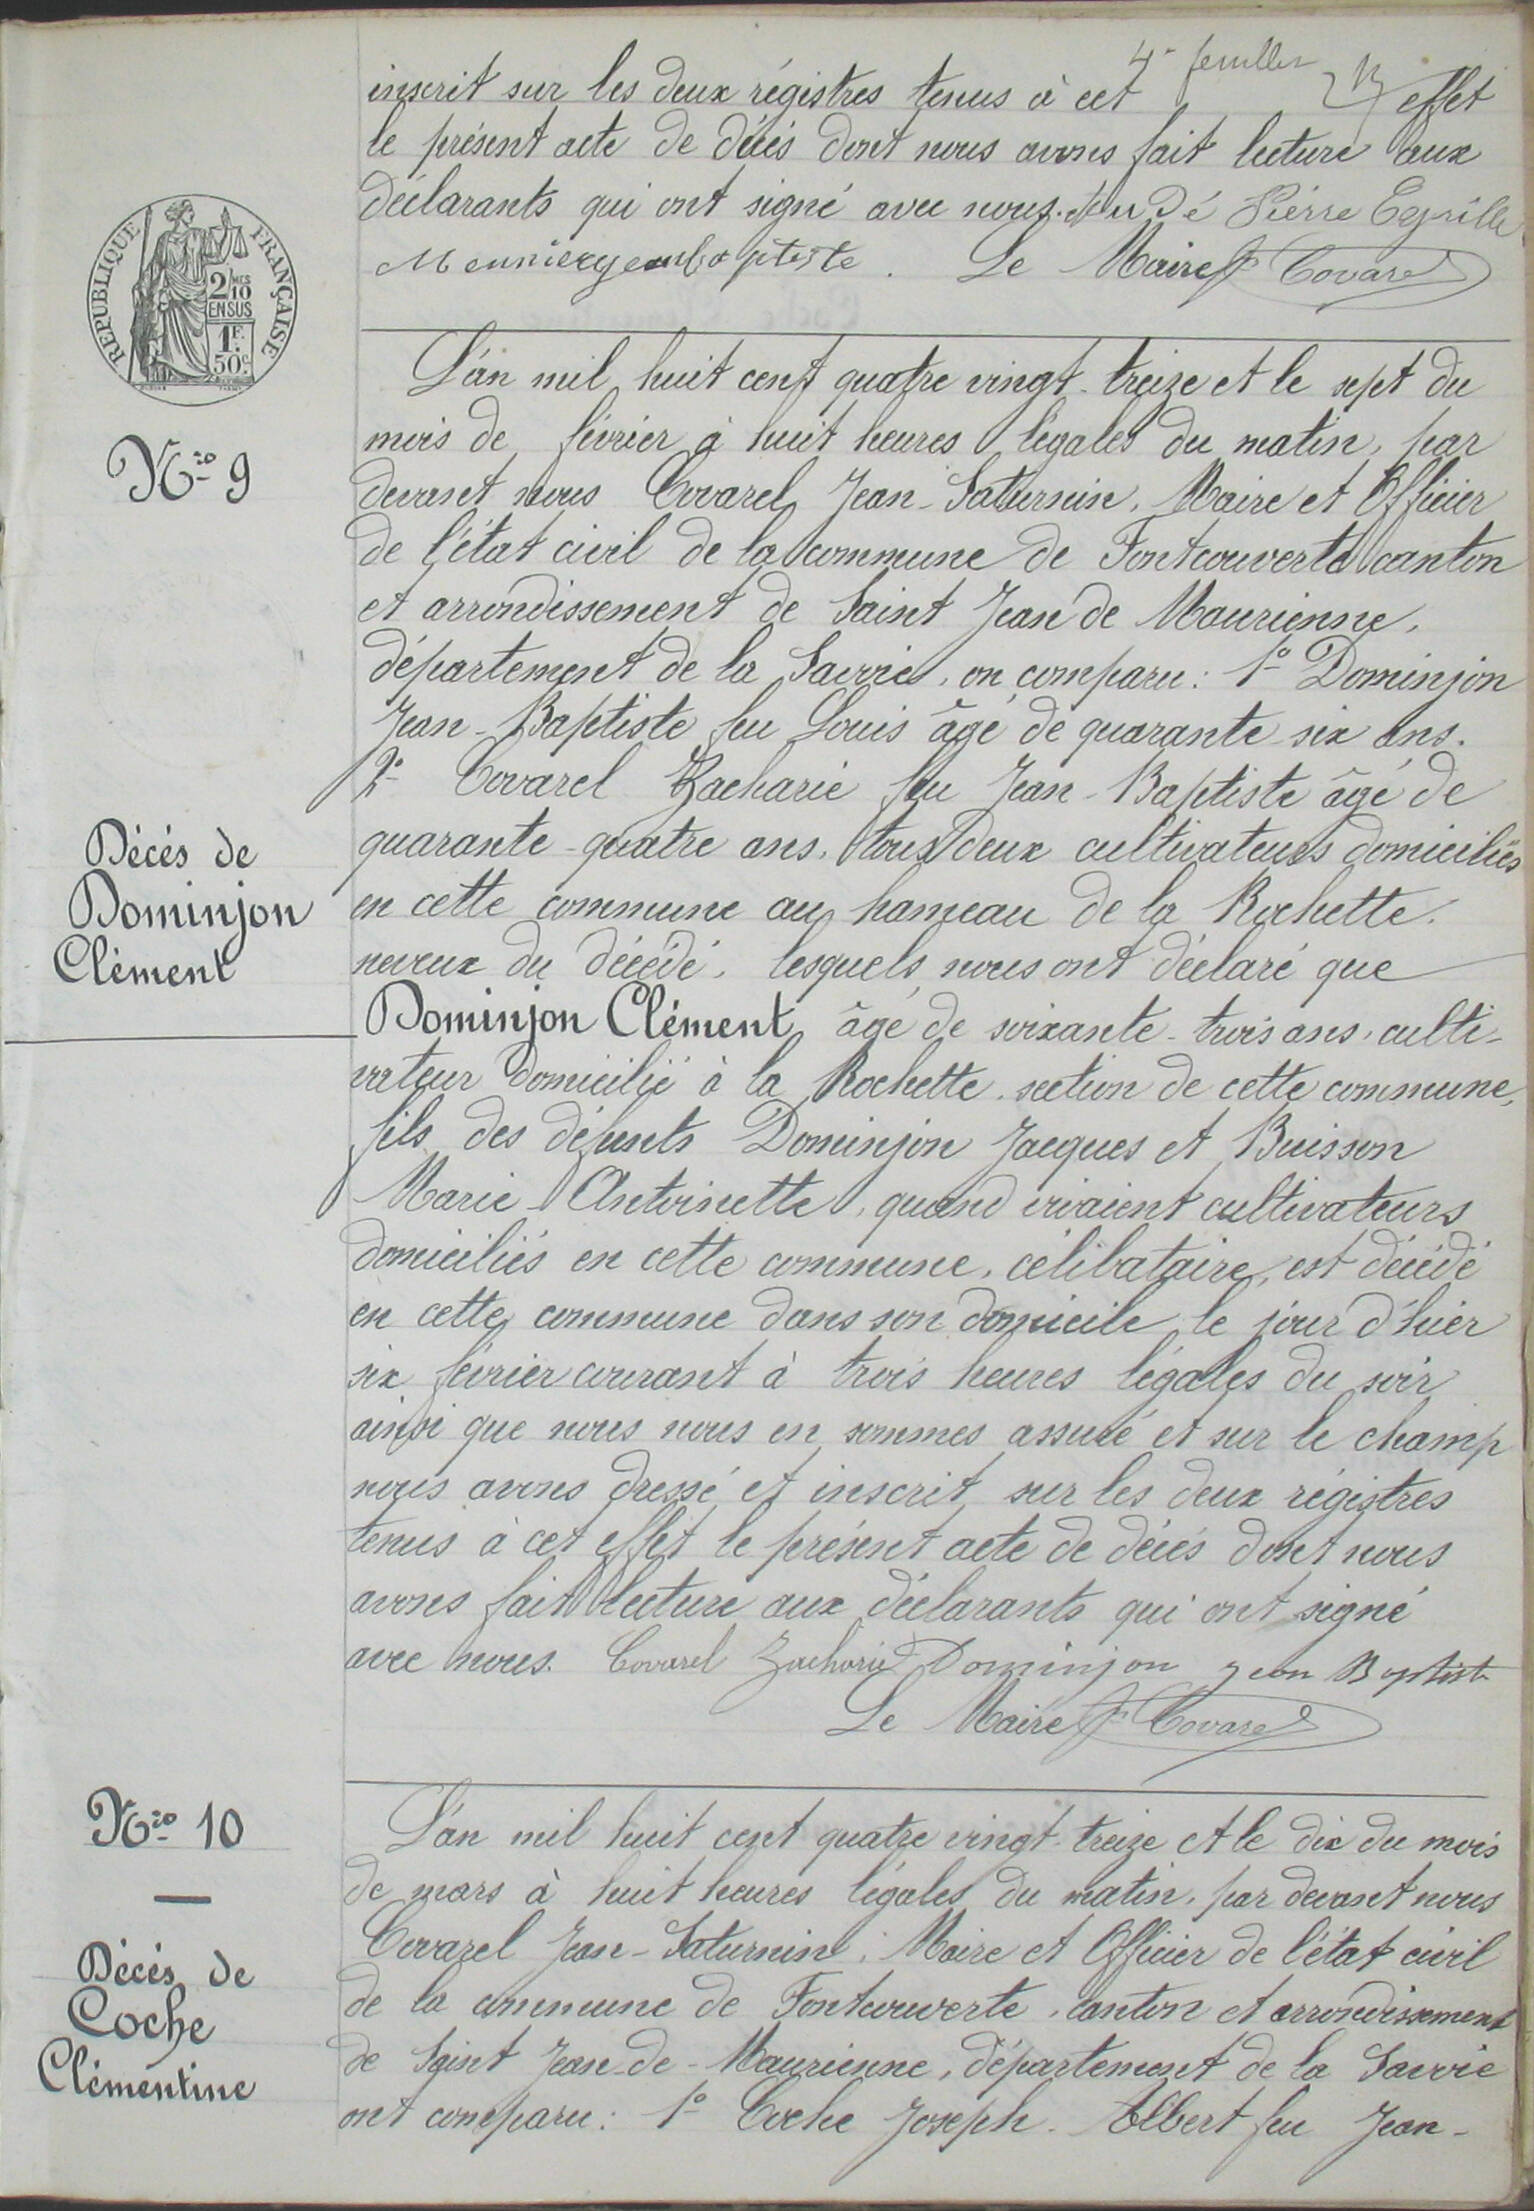 4e feuillet
inscrit sur les deux régistres tenus à cet effet
le présent acte de décés dont nous avons fait lecture aux
déclarants qui ont signé avec nous. Pierre
Meunier jean baptiste. Le Maire J Covarel
RÉPUBLIQUE FRANÇAISE
2/10 MES
EN SUS
1F.
50c
L'an mil huit cent quatre vingt-treize et le sept du
mois de février à huit heures légales du matin, par
Nro 9
devant nous Covarel Jean-Saturnin, Maire et Officier
de l'état civil de la commune de Fontcouverte canton
et arrondissement de Saint Jean de Maurienne,
département de la Savoie, on comparu: 1o Dominjon
Jean-Baptiste feu Louis âgé de quarante-six ans.
2o Covarel Zacharie feu Jean-Baptiste âgé de
quarante-quatre ans, tous deux cultivateurs domiciliés
Décés de
Dominjon
Clément
en cette commune au hameau de la Rochette.
neveux du décédé, lesquels nous ont déclaré que
Dominjon Clément, âgé de soixante-trois ans, culti-
vateur domicilié à la Rochette, section de cette commune,
fils des défunts Dominjon Jacques et Buisson
Marie Antoinette, quand vivaient cultivateurs
domiciliés en cette commune, célibataire, est décédé
en cette commune dans son domicile le jour d'hier
six février courant à trois heures légales du soir
ainsi que nous nous en sommes assuré et sur le champ
nous avons dressé et inscrit sur les deux régistres
tenus à cet effet le présent acte de décés dont nous
avons fait lecture aux déclarants qui ont signé
avec nous. Covarel Zacharie Dominjon jean Baptiste
Le Maire J Covarel
Nro 10
L'an mil huit cent quatre vingt-treize et le dix du mois
de mars à huit heures légales du matin, par devant nous
Covarel Jean-Saturnin, Maire et Officier de l'état civil
Décés de
Coche
Clémentine
de la commune de Fontcouverte, canton et arrondissement
de Saint Jean-de-Maurienne, département de la Savoie
ont comparu: 1o Coche Joseph-Albert feu Jean-